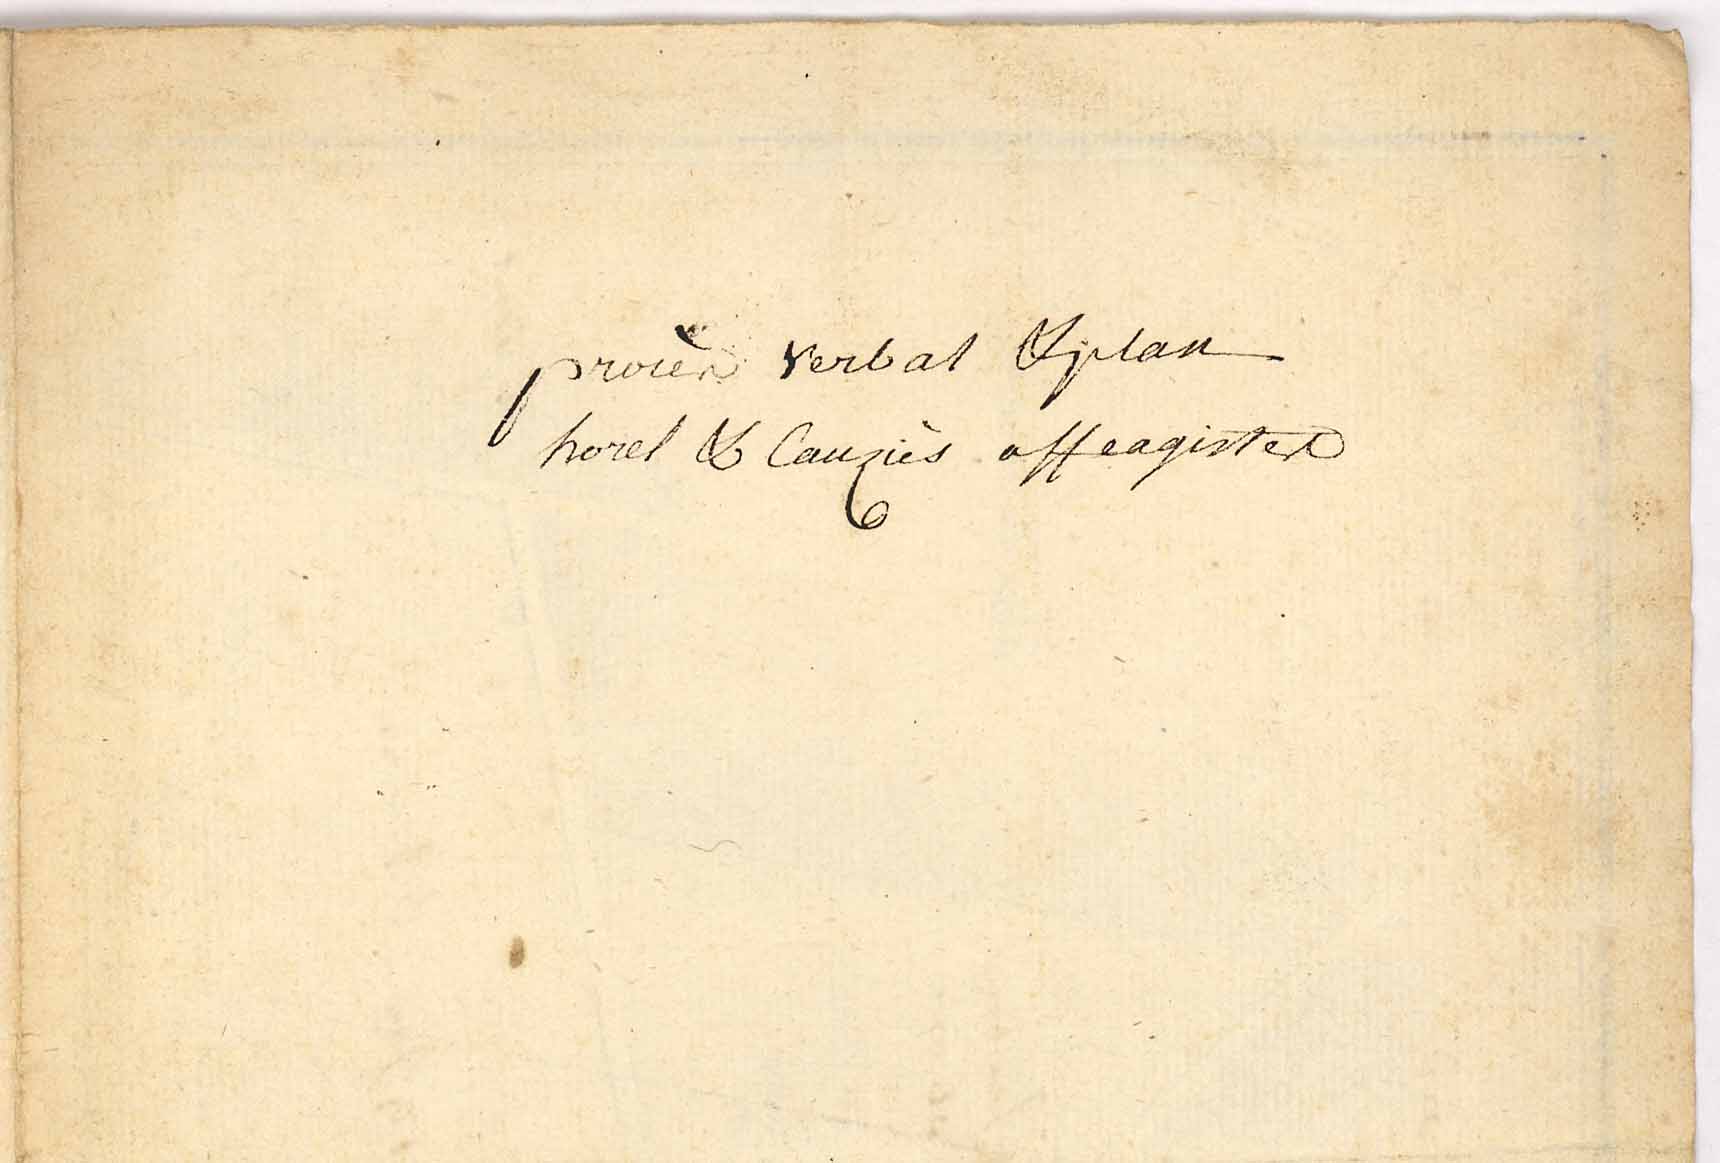 procès verbal & plan
horel & Cauziès affeagistes